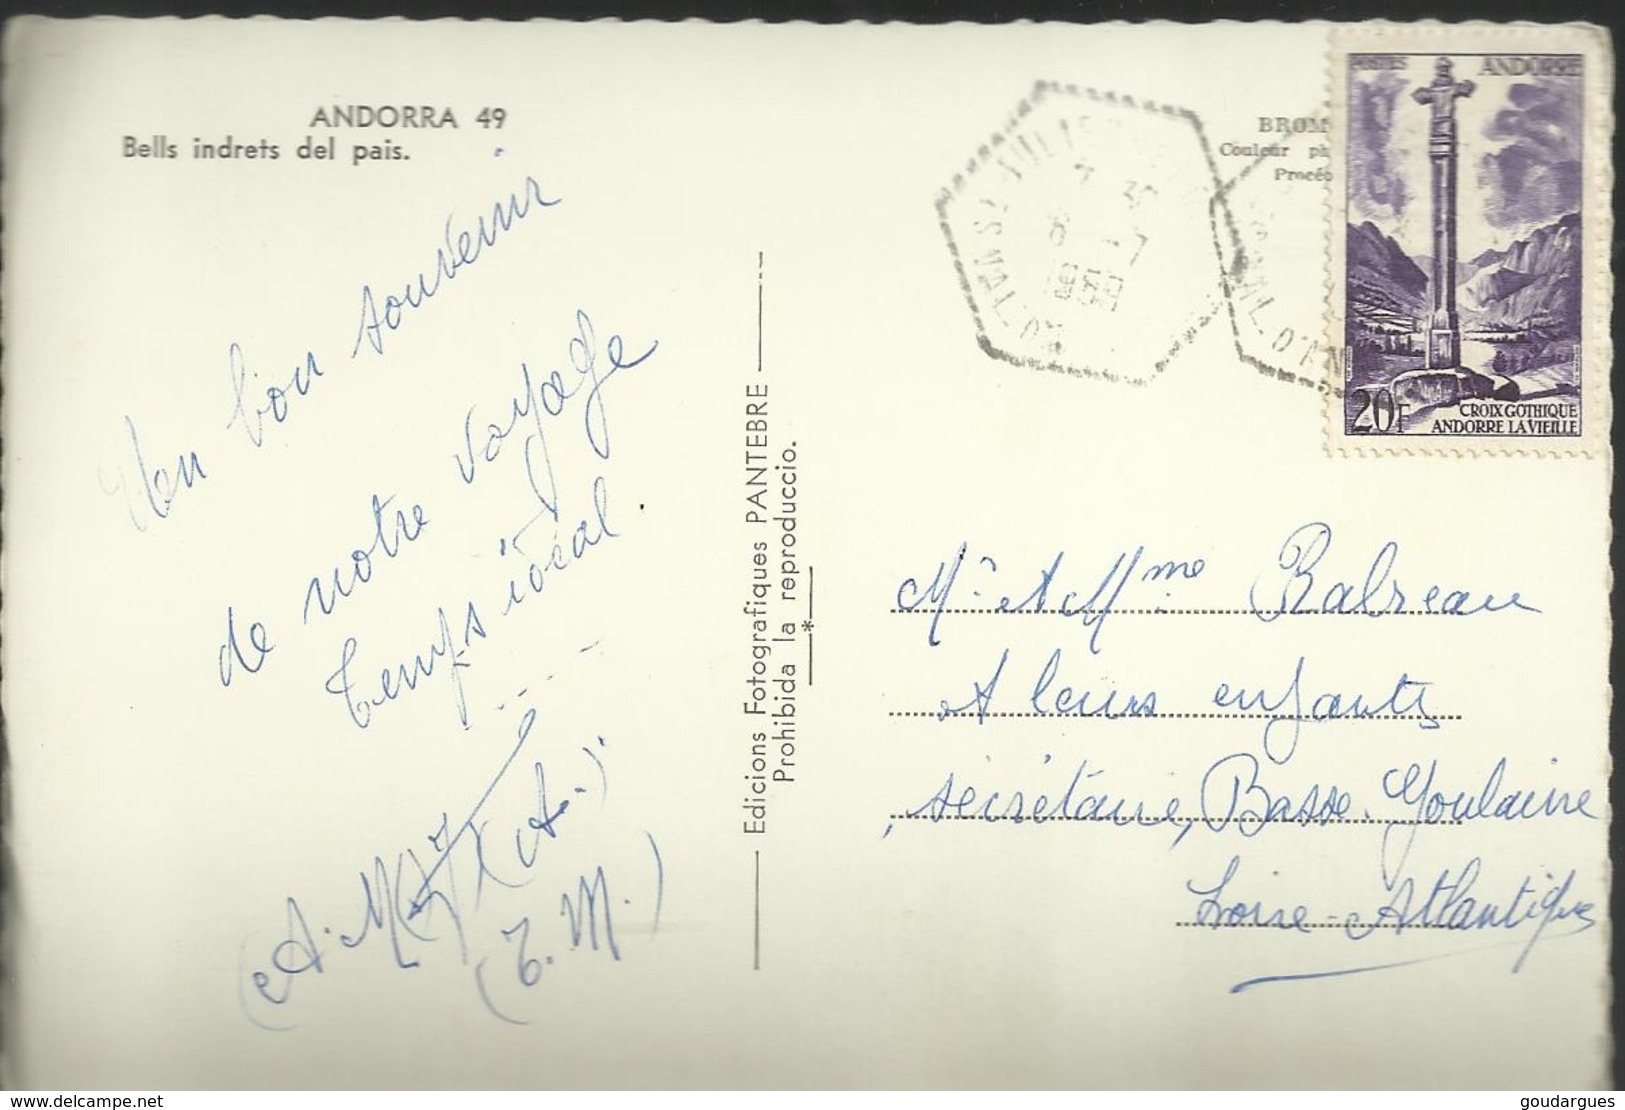 ANDORRA 49
Bells indrets del pais.
Un bon souvenir
de notre voyage
temps idéal.
(A.M.) (A.)
(T.M.)
Edicions Fotografiques PANTEBRE
Prohibida la reproduccio.
*
BROM
Couleur ph
Procéd
SAN JULIA
7 30
6 - 7
1959
VAL. D'AN
POSTES ANDORRE
20F
CROIX GOTHIQUE
ANDORRE LA VIEILLE
Mr et Mme Rabreau
et leurs enfants
secrétaire, Basse-Goulaine
Loire-Atlantique
www.delcampe.net
goudargues